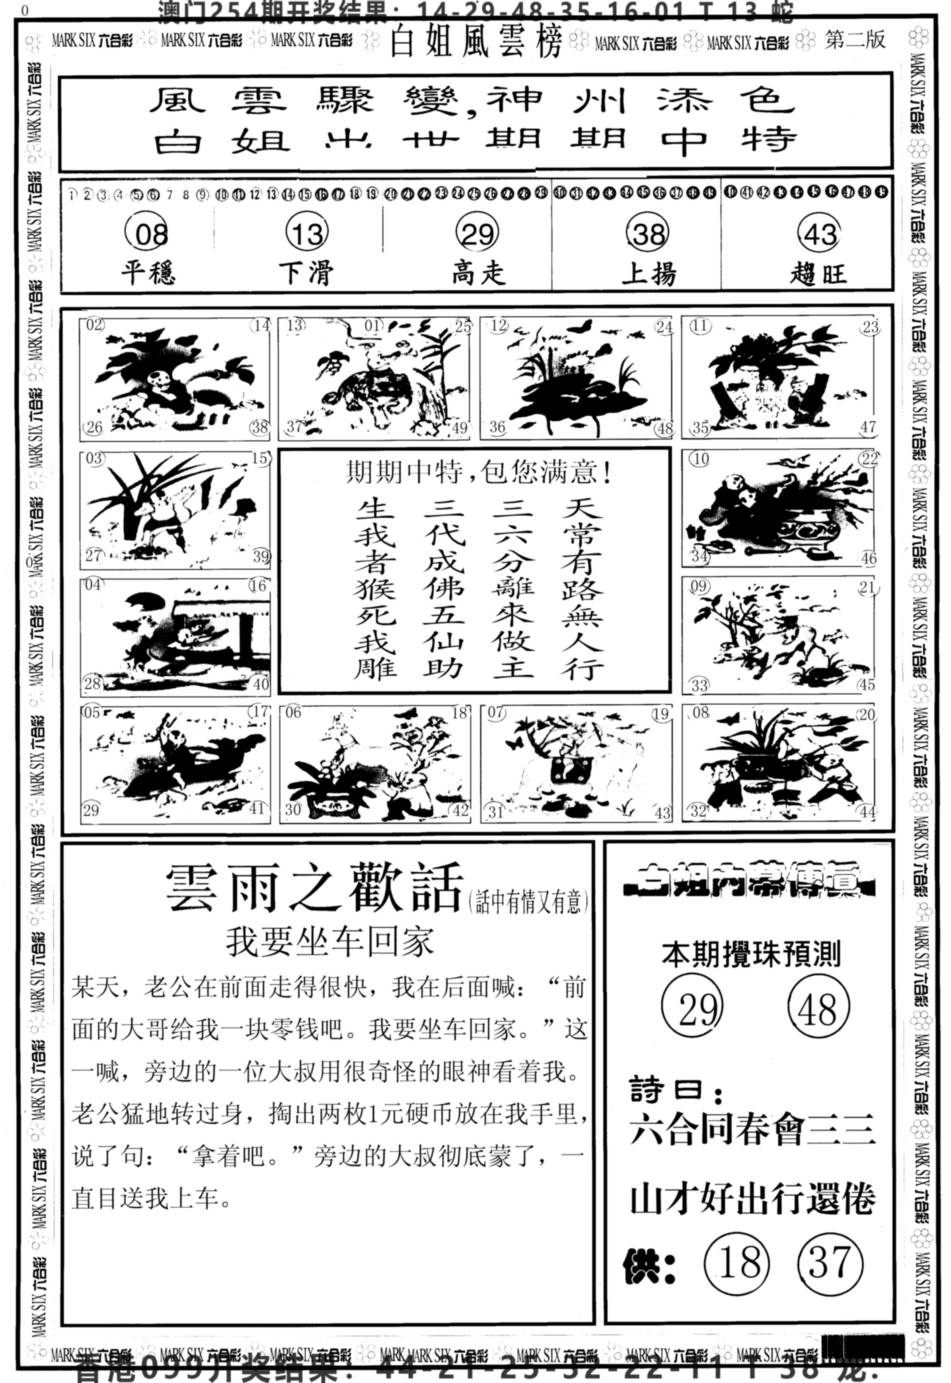 0
澳门254期开奖结果：14-29-48-35-16-01 T 13 蛇
MARK SIX 六合彩 MARK SIX 六合彩 MARK SIX 六合彩 白姐風雲榜 MARK SIX 六合彩 MARK SIX 六合彩 第二版
風雲驟變,神州添色
白姐出世期期中特
1 2 3 4 5 6 7 8 9 10 11 12 13 14 15 16 17 18 19 20 21 22 23 24 25 26 27 28 29 30 31 32 33 34 35 36 37 38 39 40 41 42 43 44 45 46 47 48 49
08 13 29 38 43
平穩 下滑 高走 上揚 趨旺
02 14 13 01 25 12 24 11 23
26 38 37 49 36 48 35 47
03 15 10 22
27 39 34 46
04 16 09 21
28 40 33 45
05 17 06 18 07 19 08 20
29 41 30 42 31 43 32 44
期期中特,包您满意!
天常有路無人行
三六分離來做主
三代成佛五仙助
生我者猴死我雕
雲雨之歡話(話中有情又有意)
我要坐车回家
某天，老公在前面走得很快，我在后面喊：“前
面的大哥给我一块零钱吧。我要坐车回家。”这
一喊，旁边的一位大叔用很奇怪的眼神看着我。
老公猛地转过身，掏出两枚1元硬币放在我手里，
说了句：“拿着吧。”旁边的大叔彻底蒙了，一
直目送我上车。
白姐内幕傳真
本期攪珠預測
29 48
詩曰：
六合同春會三三
山才好出行還倦
供： 18 37
MARK SIX 六合彩 MARK SIX 六合彩 MARK SIX 六合彩 MARK SIX 六合彩 MARK SIX 六合彩 MARK SIX 六合彩 MARK SIX 六合彩
香港099开奖结果：44-21-25-32-22-11 T 38 龙.